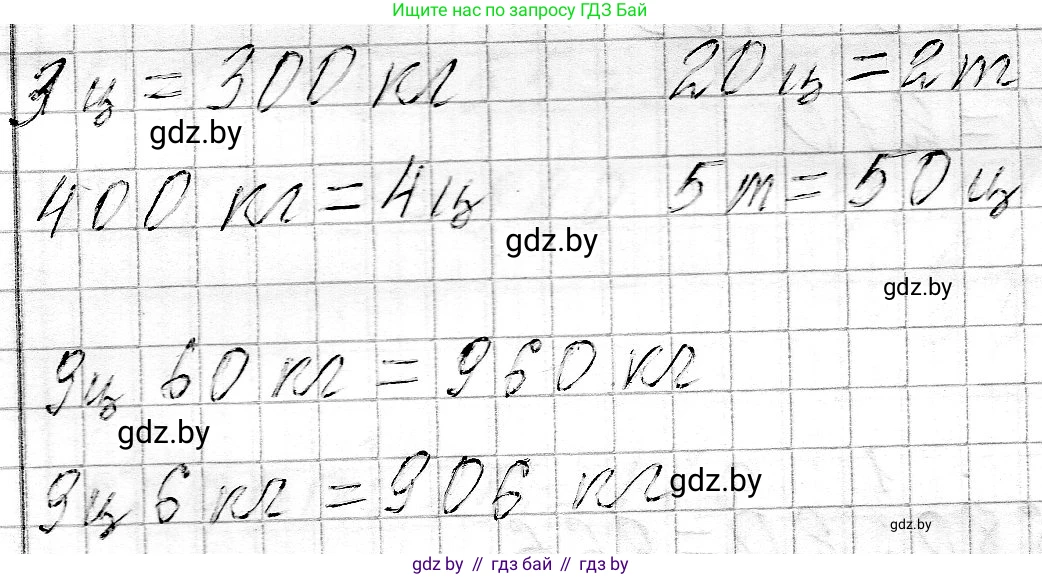 Ищите нас по запросу ГДЗ Бай
3 ц = 300 кг 20 ц = 2 т
gdz.by
400 кг = 4 ц 5 т = 50 ц
gdz.by
gdz.by
9 ц 60 кг = 960 кг
gdz.by
9 ц 6 кг = 906 кг
gdz.by
gdz.by
gdz.by // гдз бай // гдз by